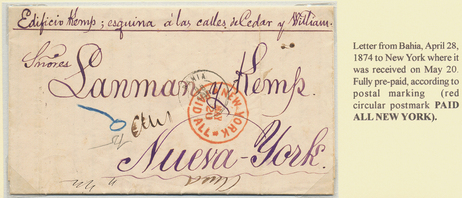 Edificio Kemp; esquina á las calles de Cedar y William.
Señores
Lanman y Kemp.
BAHIA
NEW-YORK
PAID ALL
Nueva-York.
Letter from Bahia, April 28,
1874 to New York where it
was received on May 20.
Fully pre-paid, according to
postal marking (red
circular postmark PAID
ALL NEW YORK).